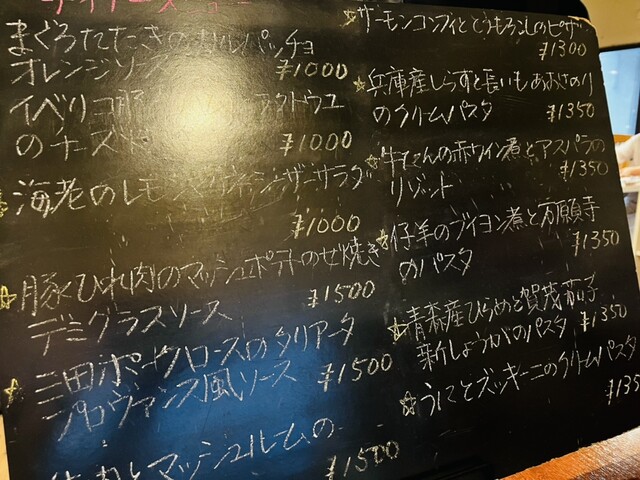 まぐろたたきのカルパッチョ
オレンジソース ¥1000
イベリコ豚
のチーズ ¥1000
海老のレモン シーザーサラダ
¥1000
☆豚ひれ肉のマッシュポテトのせ焼き
デミグラスソース ¥1500
☆三田ポークロースのタリアータ
プロヴァンス風ソース ¥1500
マッシュルームの
¥1500
☆サーモンコンフィととうもろこしのピザ
¥1300
兵庫産しらすと長いもあおさのり
のクリームパスタ ¥1350
☆牛すじ肉の赤ワイン煮とアスパラの
リゾット ¥1350
☆仔羊のブイヨン煮と万願寺
のパスタ ¥1350
☆青森産ひらめと賀茂茄子
新しょうがのパスタ ¥1350
☆うにとズッキーニのクリームパスタ
¥135